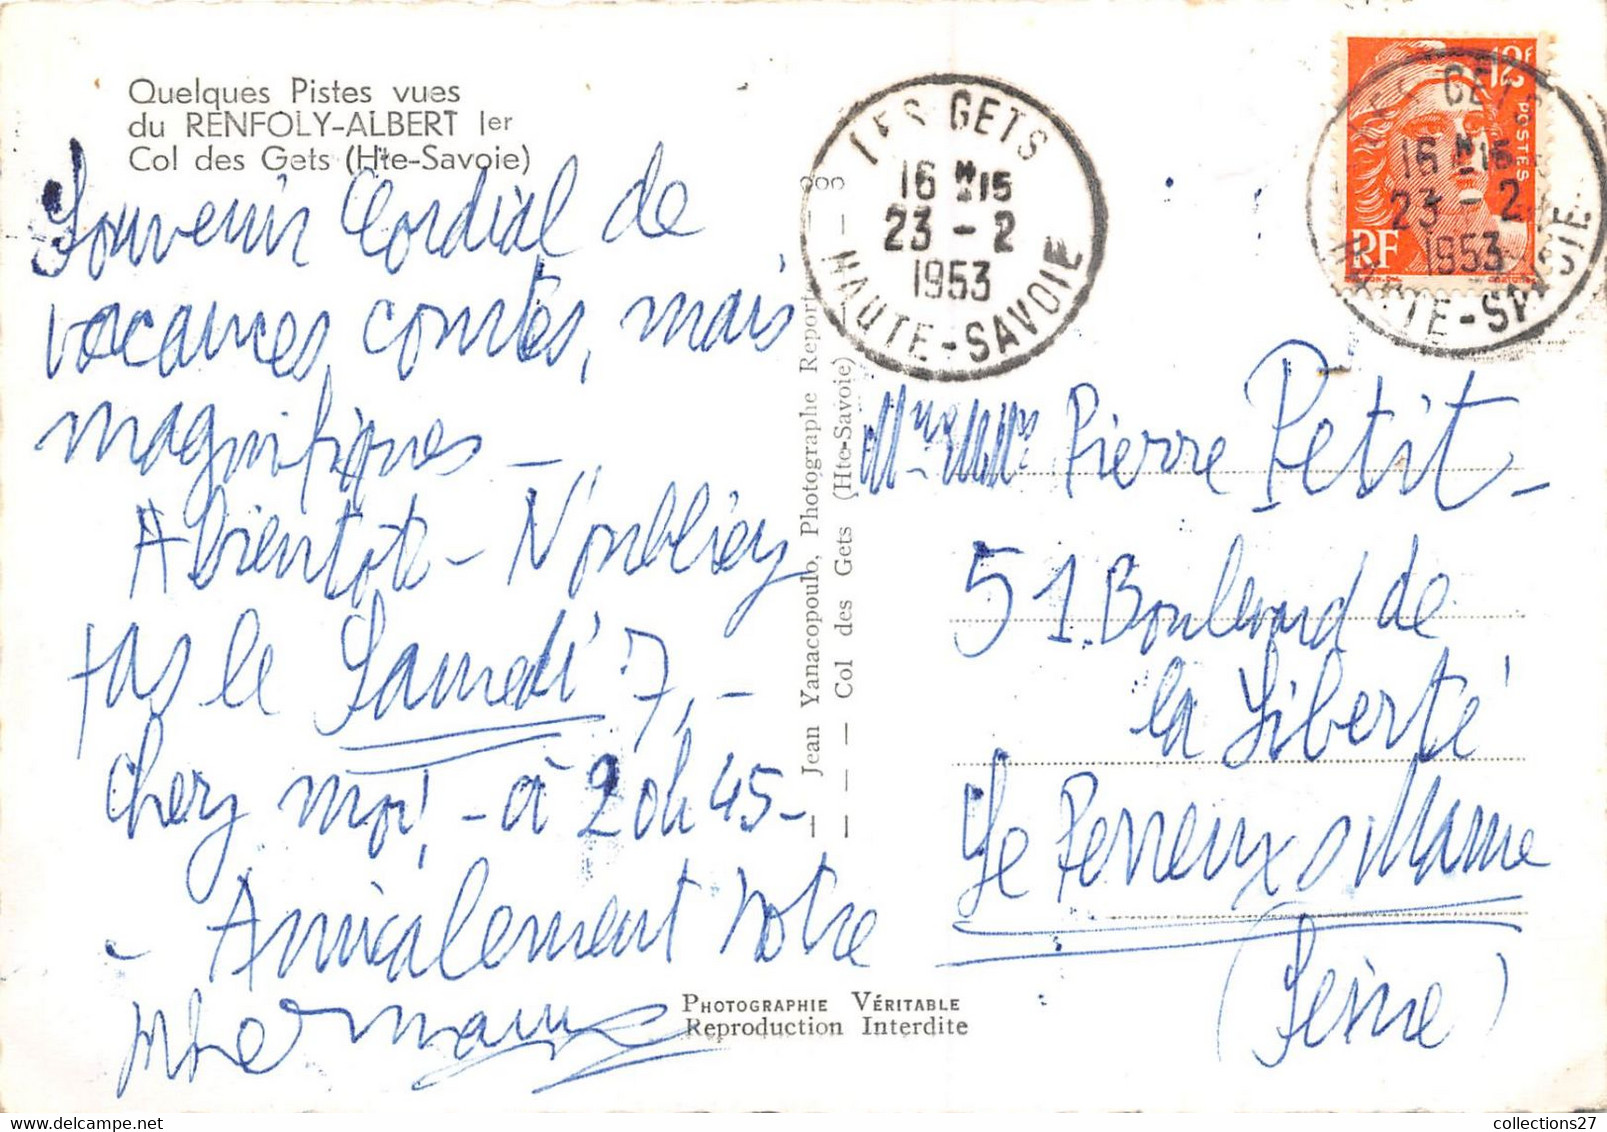 Quelques Pistes vues
du RENFOLY-ALBERT Ier
Col des Gets (Hte-Savoie)
Souvenir Cordial de
vacances courtes, mais
magnifiques -
A bientôt - N'oubliez
pas le Samedi 7, -
chez moi, - à 20h45 -
- Amicalement Votre
LES GETS
16 H 15
23 - 2
1953
HAUTE-SAVOIE
12F
POSTES
RF
LES GETS
16 H 15
23 - 2
1953
HAUTE-SAVOIE
Jean Yanacopoulo, Photographe Report
Col des Gets (Hte-Savoie)
Pierre Petit -
51. Boulevard de
la Liberté
Le Perreux s/ Marne
(Seine)
PHOTOGRAPHIE VÉRITABLE
Reproduction Interdite
collections27